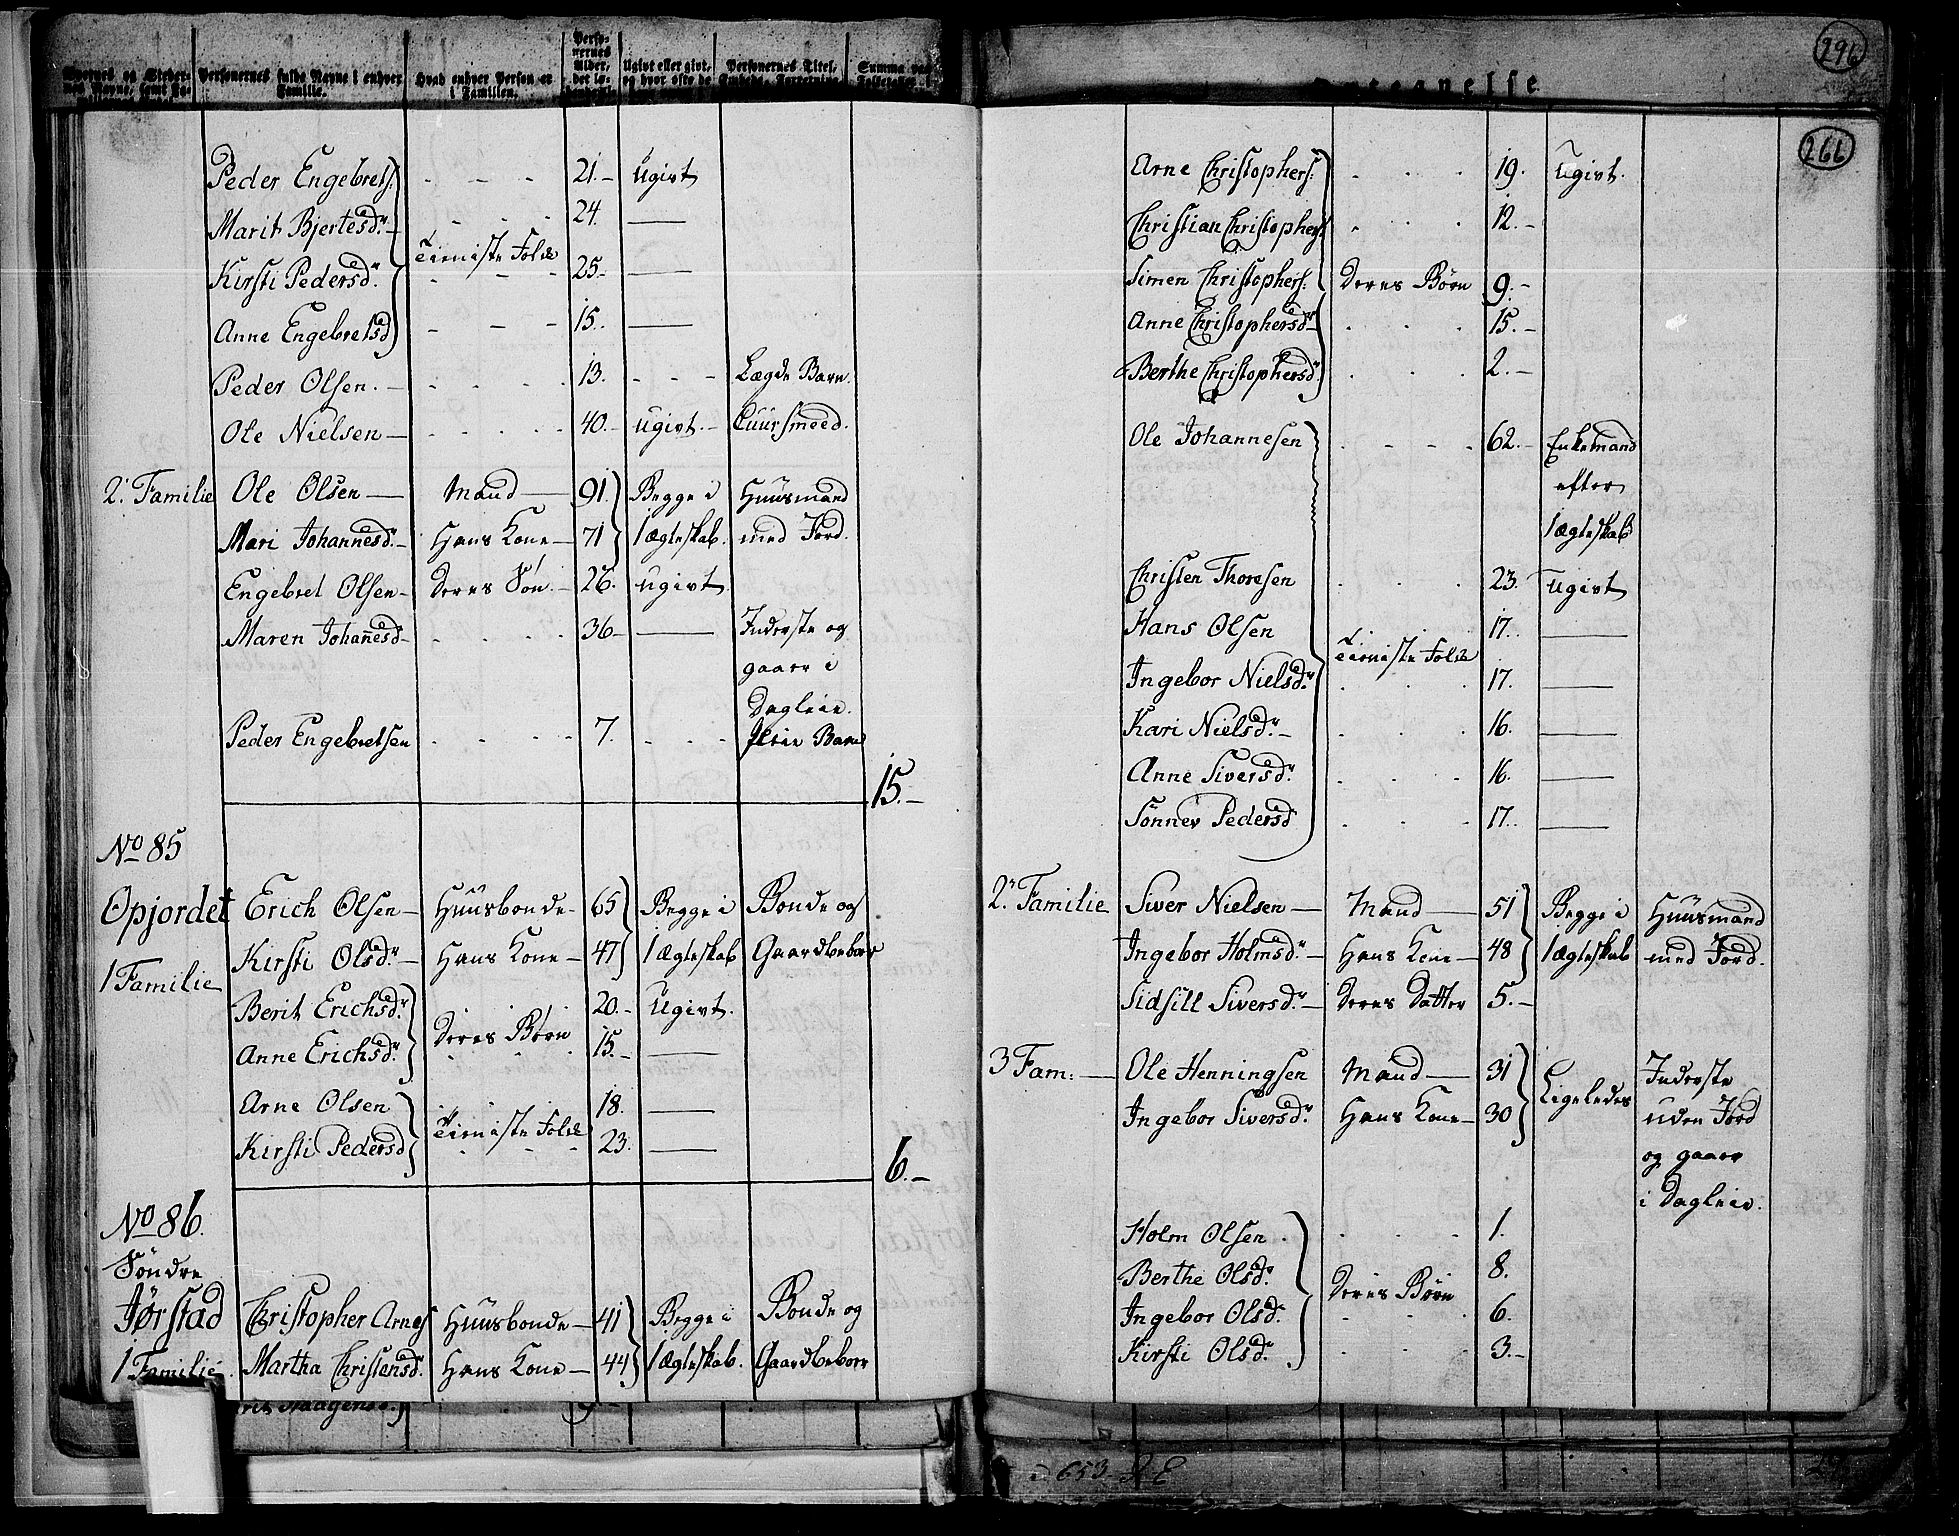 Personernes fulde Navne i enhver Familie.
Hvad enhver Person er i Familien.
Personernes Alder,
Ugivt eller givt, og hvor ofte de
Personernes Titel, Embede, Forretning
296
266
Peder Engebrets. - - - 21.- Ugivt
Marit Bjertesdr. - - - 24. —
Tieniste Folk
Kirsti Pedersdr. - - - 25.- —
Anne Engebretsd - - - 15. —
Peder Olsen. - - - - 13. - - - Lægde Barn.
Ole Nielsen — - - - - 40.- ugivt.- Cuursmeed.
2. Familie Ole Olsen — Mand — 91. Begge i Huusmand
Mari Johannesdr.- Hans Kone — 71 1 Ægteskab. med Jord.
Engebret Olsen - Deres Søn. - 26. ugivt
Maren Johanesd - - - - - 36 - — Inderste og
gaaer i
Dagleie.
Peder Engebretsen - - - - 7. - - -
15.-
No 85
Opjordet Erich Olsen — Huusbonde - 65 Begge i Bonde og
Kirsti Olsdr. — Hans Kone — 47 1 Ægteskab Gaardbeboer
1 Familie
Berit Erichsdr. 20.- Ugivt.
Deres Børn
Anne Erichsdr. 15.- —
Arne Olsen 18. —
Tieniste Folk
Kirsti Pedersd 23. —
6.-
No 86.
Søndre
Jørstad Christopher Arnes Huusbonde — 41 Begge i Bonde og
1 Familie. Martha Christensdr. Hans Kone — 44 1 Ægteskab. Gaardbeboer
Arne Christophers. - - - 19. Ugivt.
Christian Christophers - - - 12.-
Simen Christophers. Deres Børn 9.-
Anne Christophersdr. - - - 15.-
Berthe Christophersdr. - - - 2.-
Ole Johannesen - - - - 62.- Enkemand
efter
1 Ægteskab
Christen Thoresen - - - 23. ugivt
Hans Olsen 17. —
Tieniste Folk
Ingebor Nielsdr. - - - 17. —
Kari Nielsdr. - - - - 16. —
Anne Siversdr. - - - 16. —
Sønnev Pedersd - - - 17. —
2. Familie Siver Nielsen — Mand — 51 Begge i Huusmand
Ingebor Holmsdr. — Hans Kone — 48 1 Ægteskab med Jord.
Sidsill Siversdr. — Deres Datter 5.-
3 Fam: — Ole Henningsen Mand — 31 Ligeledes Inderste
Ingebor Siversdr. Hans Kone — 30 uden Jord
og gaaer
i Dagleie.
Holm Olsen - - - - 1.
Berthe Olsdr. 8.
Deres Børn
Ingebor Olsdr. - - - 6.
Kirsti Olsdr. - - - 3.-
653